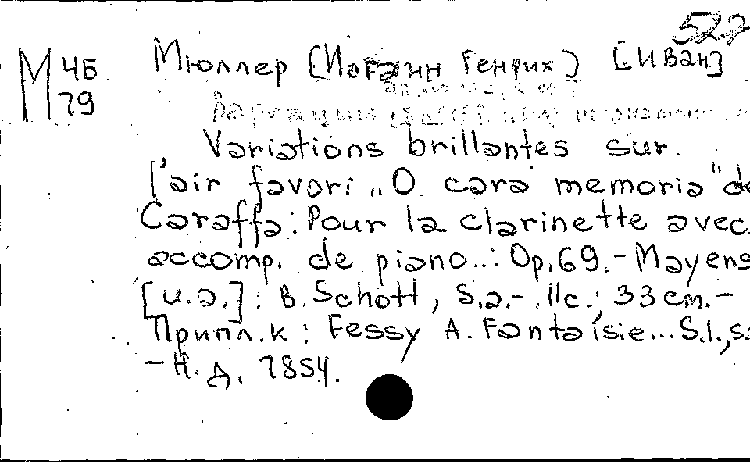 527
М 4Б Мюллер [Иоганн Генрих] [Иван]
79
Variations brillantes sur
l'air favori „O cara memoria" de
Caraffa: Pour la clarinette avec
accomp. de piano..: Op.69.- Mayens
[u.a.]: B. Schott, S.a.- 11c.; 33cm.-
Припл.к: Fessy A. Fantaisie... S.l., s.
-Н.д. 7854.